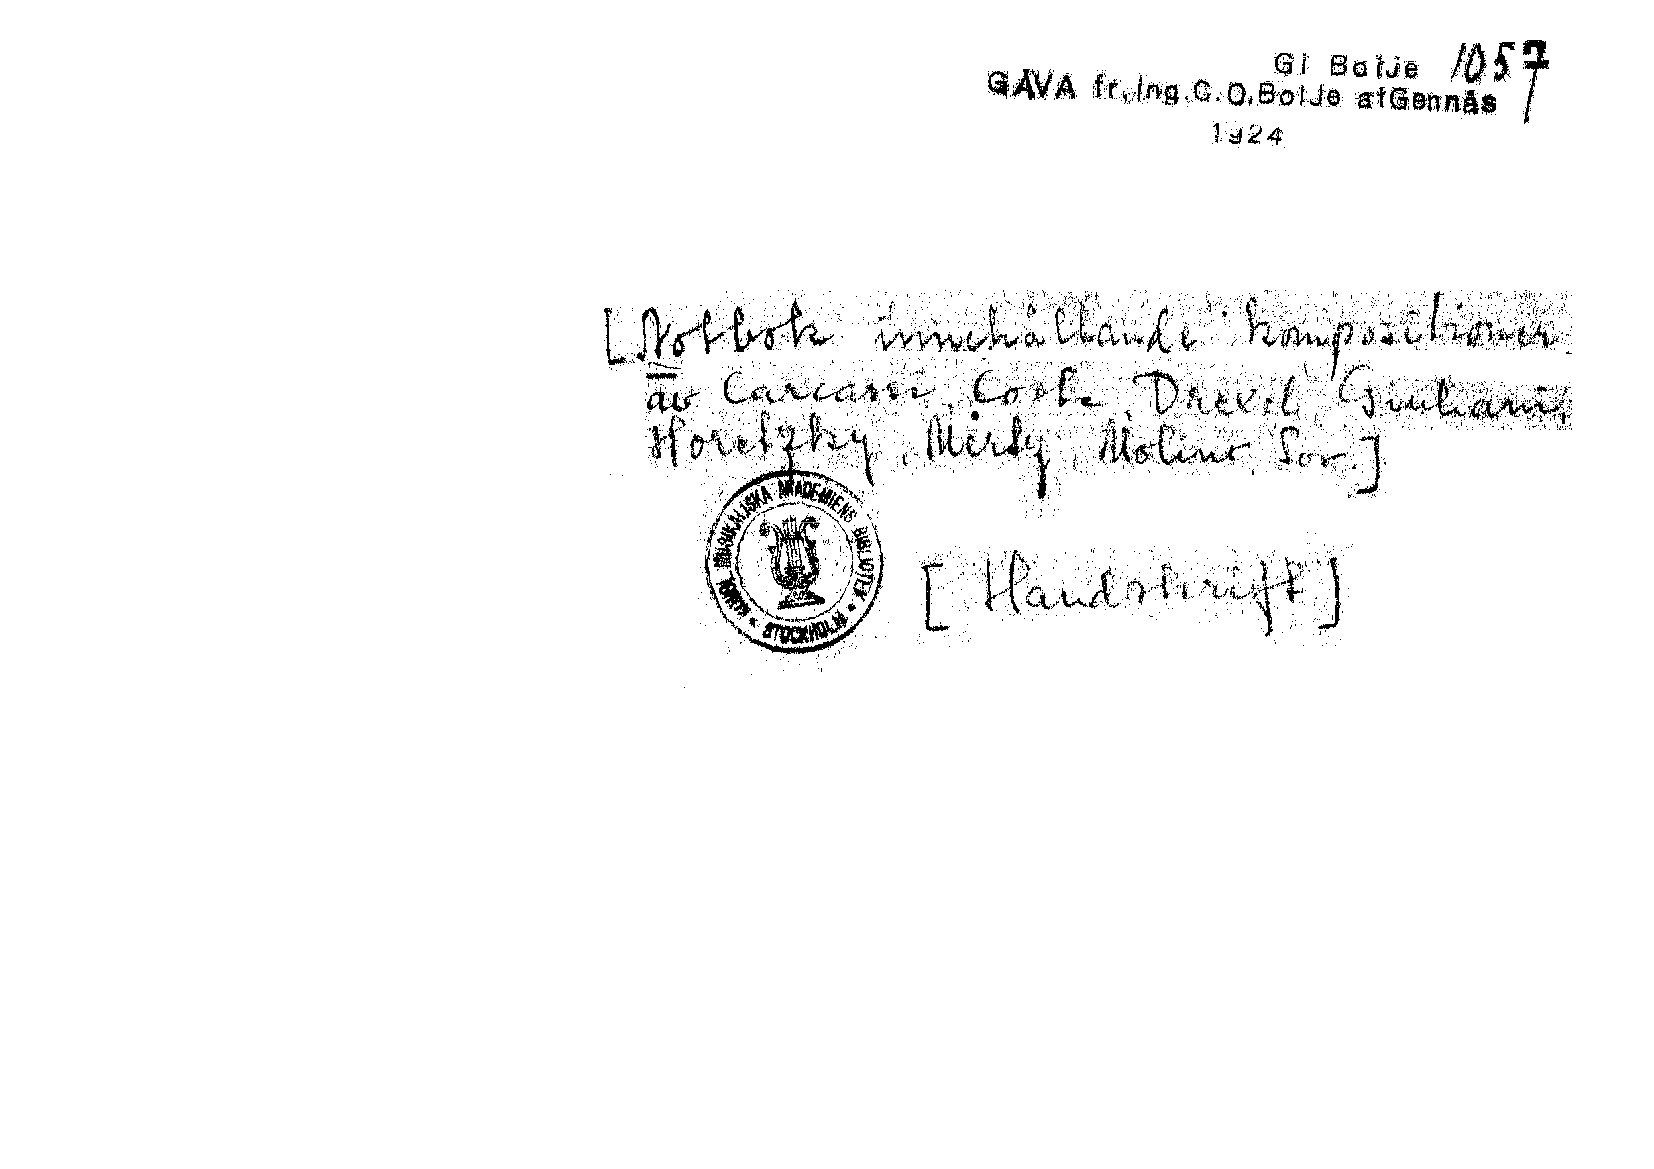 Gl Boije 1057
GÅVA fr. Ing. C. O. Boije af Gennäs
1924
[Notbok innehållande kompositioner
av Carcassi, Coste, Drexel, Giuliani,
Horetzky, Mertz, Molino, Sor.]
KUNGL. MUSIKALISKA AKADEMIENS BIBLIOTEK * STOCKHOLM *
[Handskrift]